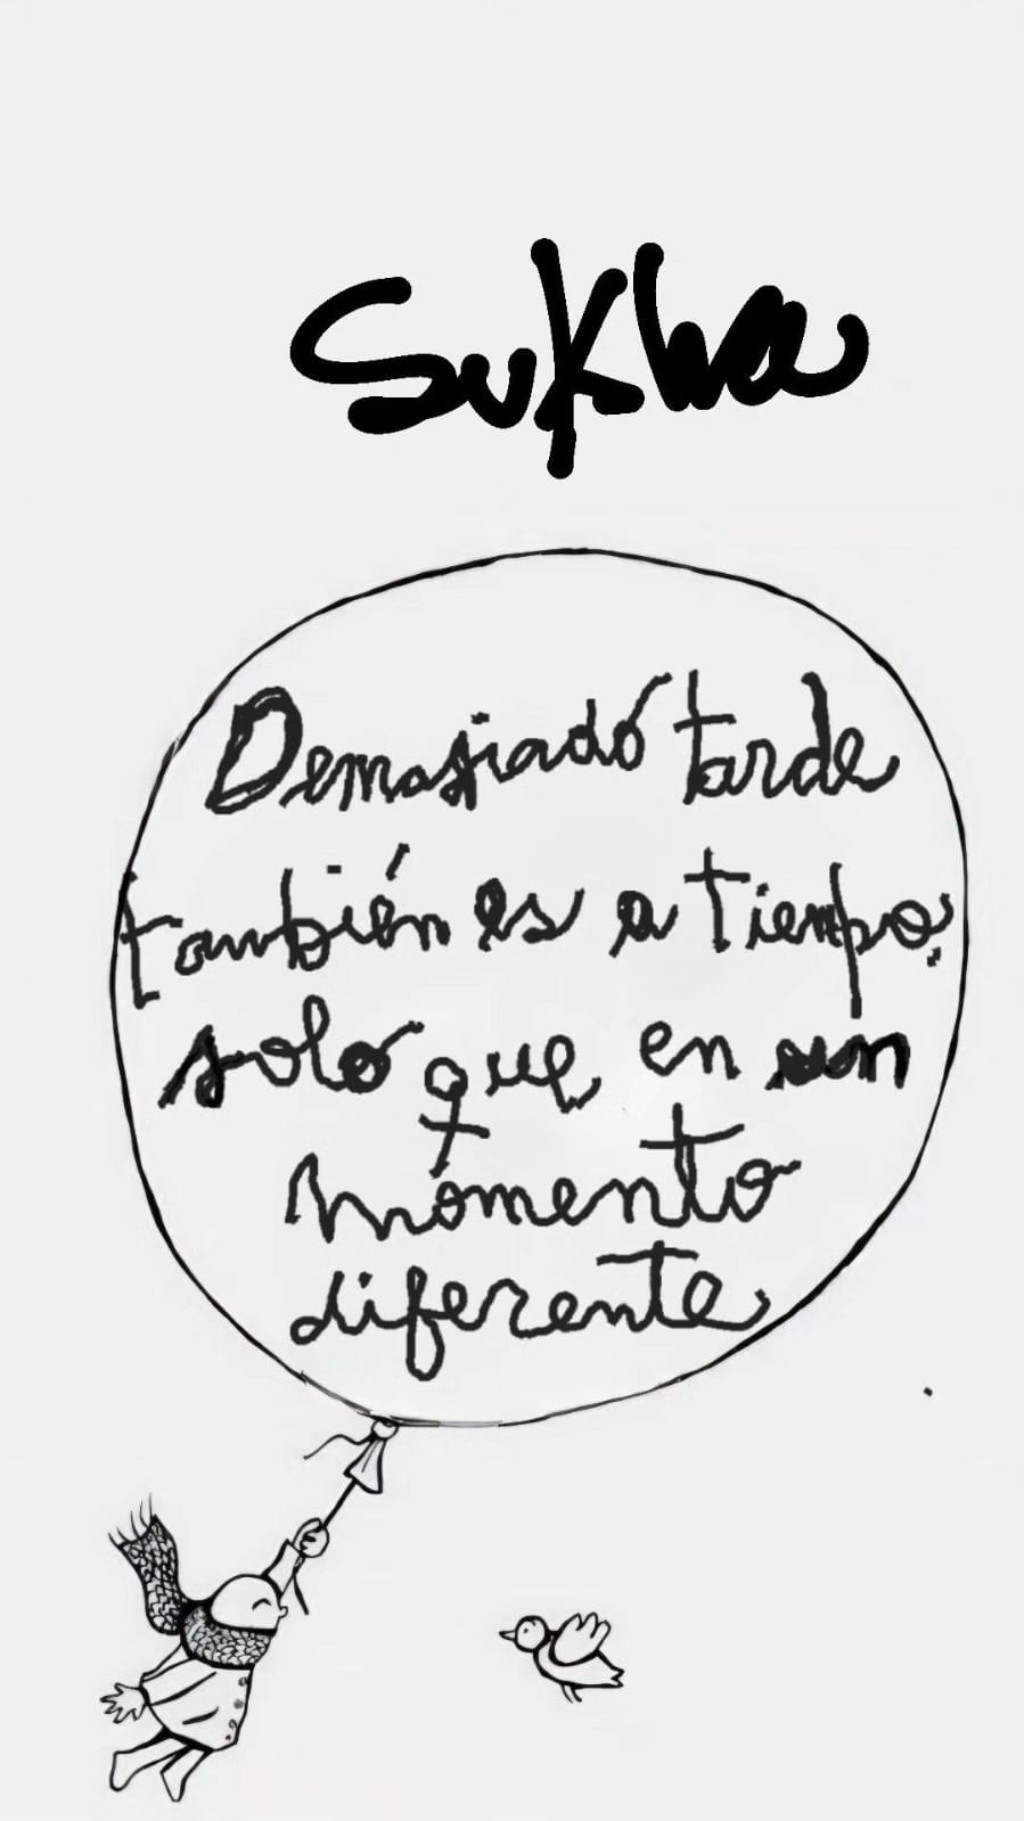 Sukha
Demasiado tarde
también es a tiempo,
solo que en un
momento
diferente